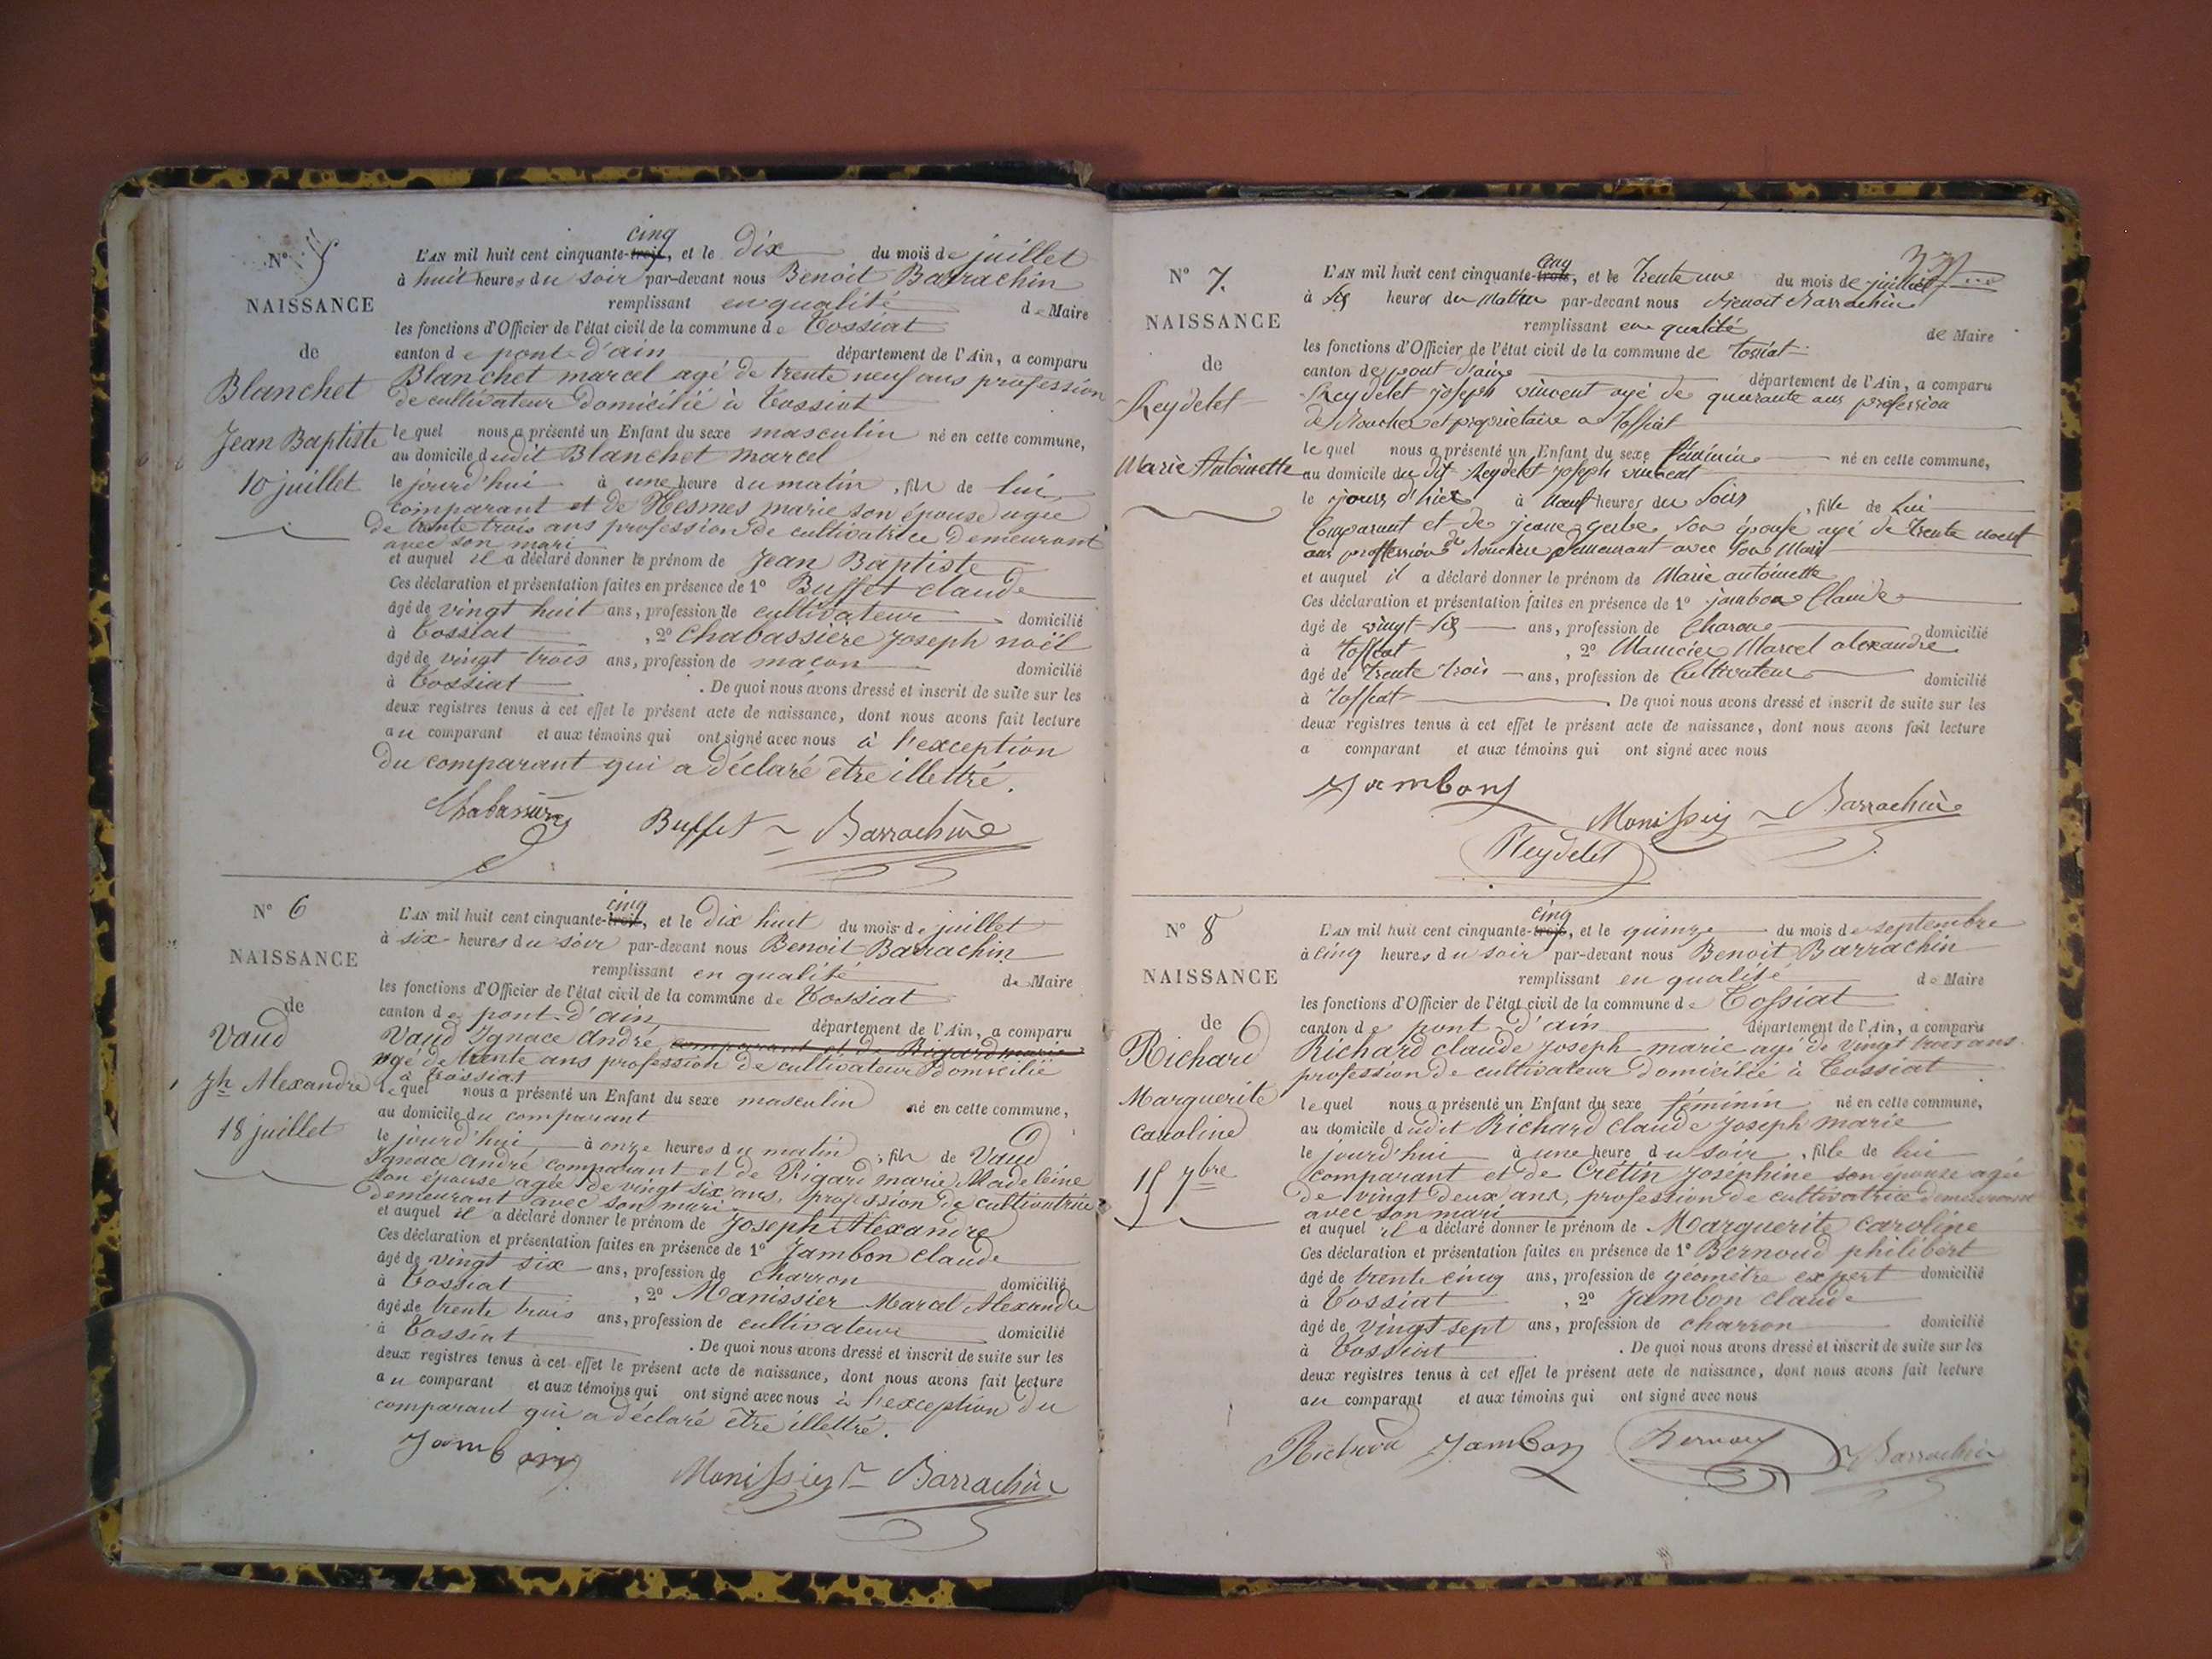 N° 5
NAISSANCE
de
Blanchet
Jean Baptiste
10 juillet
cinq
L'AN mil huit cent cinquante-trois, et le dix du mois de juillet
à huit heures du soir par-devant nous Benoit Barrachin
remplissant en qualité de Maire
les fonctions d'Officier de l'état civil de la commune de Tossiat
canton de pont-d'ain département de l'Ain, a comparu
Blanchet marcel agé de trente neuf ans profession
de cultivateur domicilié à Tossiat
lequel nous a présenté un Enfant du sexe masculin né en cette commune,
au domicile dudit Blanchet marcel
le jourd'hui à une heure du matin, fils de lui
comparant et de Hesmes marie son épouse agée
de trente trois ans profession de cultivatrice demeurant
avec son mari
et auquel il a déclaré donner le prénom de Jean Baptiste
Ces déclaration et présentation faites en présence de 1° Buffet claude
âgé de vingt huit ans, profession de cultivateur domicilié
à Tossiat, 2° Chabassière joseph noël
âgé de vingt trois ans, profession de maçon domicilié
à Tossiat. De quoi nous avons dressé et inscrit de suite sur les
deux registres tenus à cet effet le présent acte de naissance, dont nous avons fait lecture
au comparant et aux témoins qui ont signé avec nous à l'exception
du comparant qui a déclaré être illettré.
Chabassière Buffet Barrachin
N° 6
NAISSANCE
de
Vaud
Jh Alexandre
18 juillet
cinq
L'AN mil huit cent cinquante-trois, et le dix huit du mois de juillet
à six heures du soir par-devant nous Benoit Barrachin
remplissant en qualité de Maire
les fonctions d'Officier de l'état civil de la commune de Tossiat
canton de pont-d'ain département de l'Ain, a comparu
Vaud Ignace André comparant et de Rigard marie
agé de trente ans profession de cultivateur domicilié
à Tossiat
lequel nous a présenté un Enfant du sexe masculin né en cette commune,
au domicile du comparant
le jourd'hui à onze heures du matin, fils de Vaud
Ignace andré comparant et de Rigard marie Madeleine
son épouse agée de vingt six ans, profession de cultivatrice
demeurant avec son mari
et auquel il a déclaré donner le prénom de Joseph Alexandre
Ces déclaration et présentation faites en présence de 1° Jambon claude
âgé de vingt six ans, profession de charron domicilié
à Tossiat, 2° Manissier Marcel Alexandre
âgé de trente trois ans, profession de cultivateur domicilié
à Tossiat. De quoi nous avons dressé et inscrit de suite sur les
deux registres tenus à cet effet le présent acte de naissance, dont nous avons fait lecture
au comparant et aux témoins qui ont signé avec nous à l'exception du
comparant qui a déclaré être illettré.
Jambon Manissier Barrachin
N° 7.
NAISSANCE
de
Reydelet
Marie Antoinette
cinq
L'AN mil huit cent cinquante-trois, et le trente une du mois de juillet
à six heures du matin par-devant nous Benoit Barrachin
remplissant en qualité de Maire
les fonctions d'Officier de l'état civil de la commune de Tossiat
canton de pont d'ain département de l'Ain, a comparu
Reydelet joseph vincent agé de quarante ans profession
de Boucher et propriétaire a Tossiat
lequel nous a présenté un Enfant du sexe féminin né en cette commune,
au domicile du dit Reydelet joseph vincent
le jours d'hier à neuf heures du soir, fille de lui
Comparant et de jeane gerbe son épouse agé de trente neuf
ans proffession de Bouchere demeurant avec son Mari
et auquel il a déclaré donner le prénom de Marie antoinette
Ces déclaration et présentation faites en présence de 1° jambon Claude
âgé de vingt-six ans, profession de Charon domicilié
à Tossiat, 2° Manicier Marcel alexandre
âgé de trente trois ans, profession de Cultivateur domicilié
à Tossiat De quoi nous avons dressé et inscrit de suite sur les
deux registres tenus à cet effet le présent acte de naissance, dont nous avons fait lecture
a comparant et aux témoins qui ont signé avec nous
Jambon Manissier Barrachin
Reydelet
N° 8
NAISSANCE
de
Richard
Marguerite
Caroline
15 7bre
cinq
L'AN mil huit cent cinquante-trois, et le quinze du mois de septembre
à cinq heures du soir par-devant nous Benoit Barrachin
remplissant en qualité de Maire
les fonctions d'Officier de l'état civil de la commune de Tossiat
canton de pont-d'ain département de l'Ain, a comparu
Richard claude joseph marie agé de vingt trois ans
profession de cultivateur domicilié à Tossiat
lequel nous a présenté un Enfant du sexe féminin né en cette commune,
au domicile dudit Richard claude joseph marie
le jourd'hui à une heure du soir, fille de lui
comparant et de Cretin joséphine son épouse agée
de vingt deux ans, profession de cultivatrice demeurant
avec son mari
et auquel il a déclaré donner le prénom de Marguerite caroline
Ces déclaration et présentation faites en présence de 1° Bernoud philibert
âgé de trente cinq ans, profession de géomètre expert domicilié
à Tossiat, 2° Jambon claude
âgé de vingt sept ans, profession de charron domicilié
à Tossiat. De quoi nous avons dressé et inscrit de suite sur les
deux registres tenus à cet effet le présent acte de naissance, dont nous avons fait lecture
au comparant et aux témoins qui ont signé avec nous
Richard Jambon Bernoud Barrachin